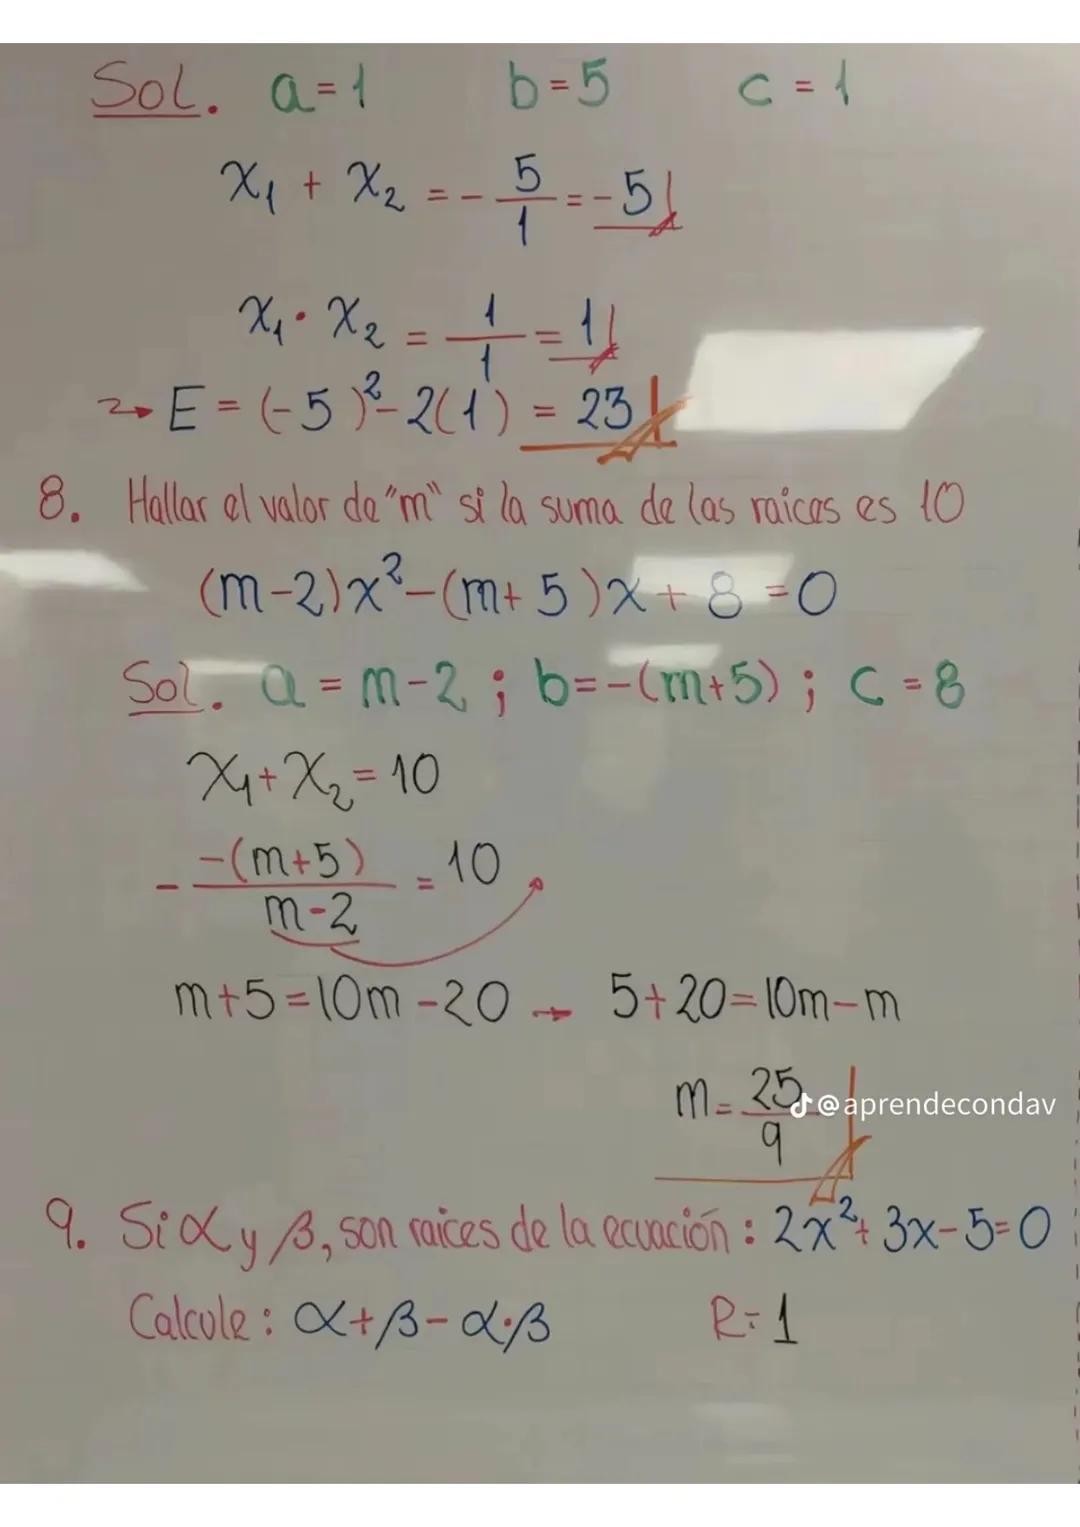 Sol. a = 1 b = 5 c = 1
x₁ + x₂ = - 5/1 = -5
x₁ · x₂ = 1/1 = 1
→ E = (-5)² - 2(1) = 23
8. Hallar el valor de "m" si la suma de las raices es 10
(m-2)x² - (m+5)x + 8 = 0
Sol. a = m-2 ; b = -(m+5) ; c = 8
x₁ + x₂ = 10
- -(m+5)/(m-2) = 10
m+5 = 10m - 20 → 5+20 = 10m - m
m = 25/9
@aprendecondav
9. Si α y β, son raices de la ecuación : 2x² + 3x - 5 = 0
Calcule : α + β - α·β R = 1